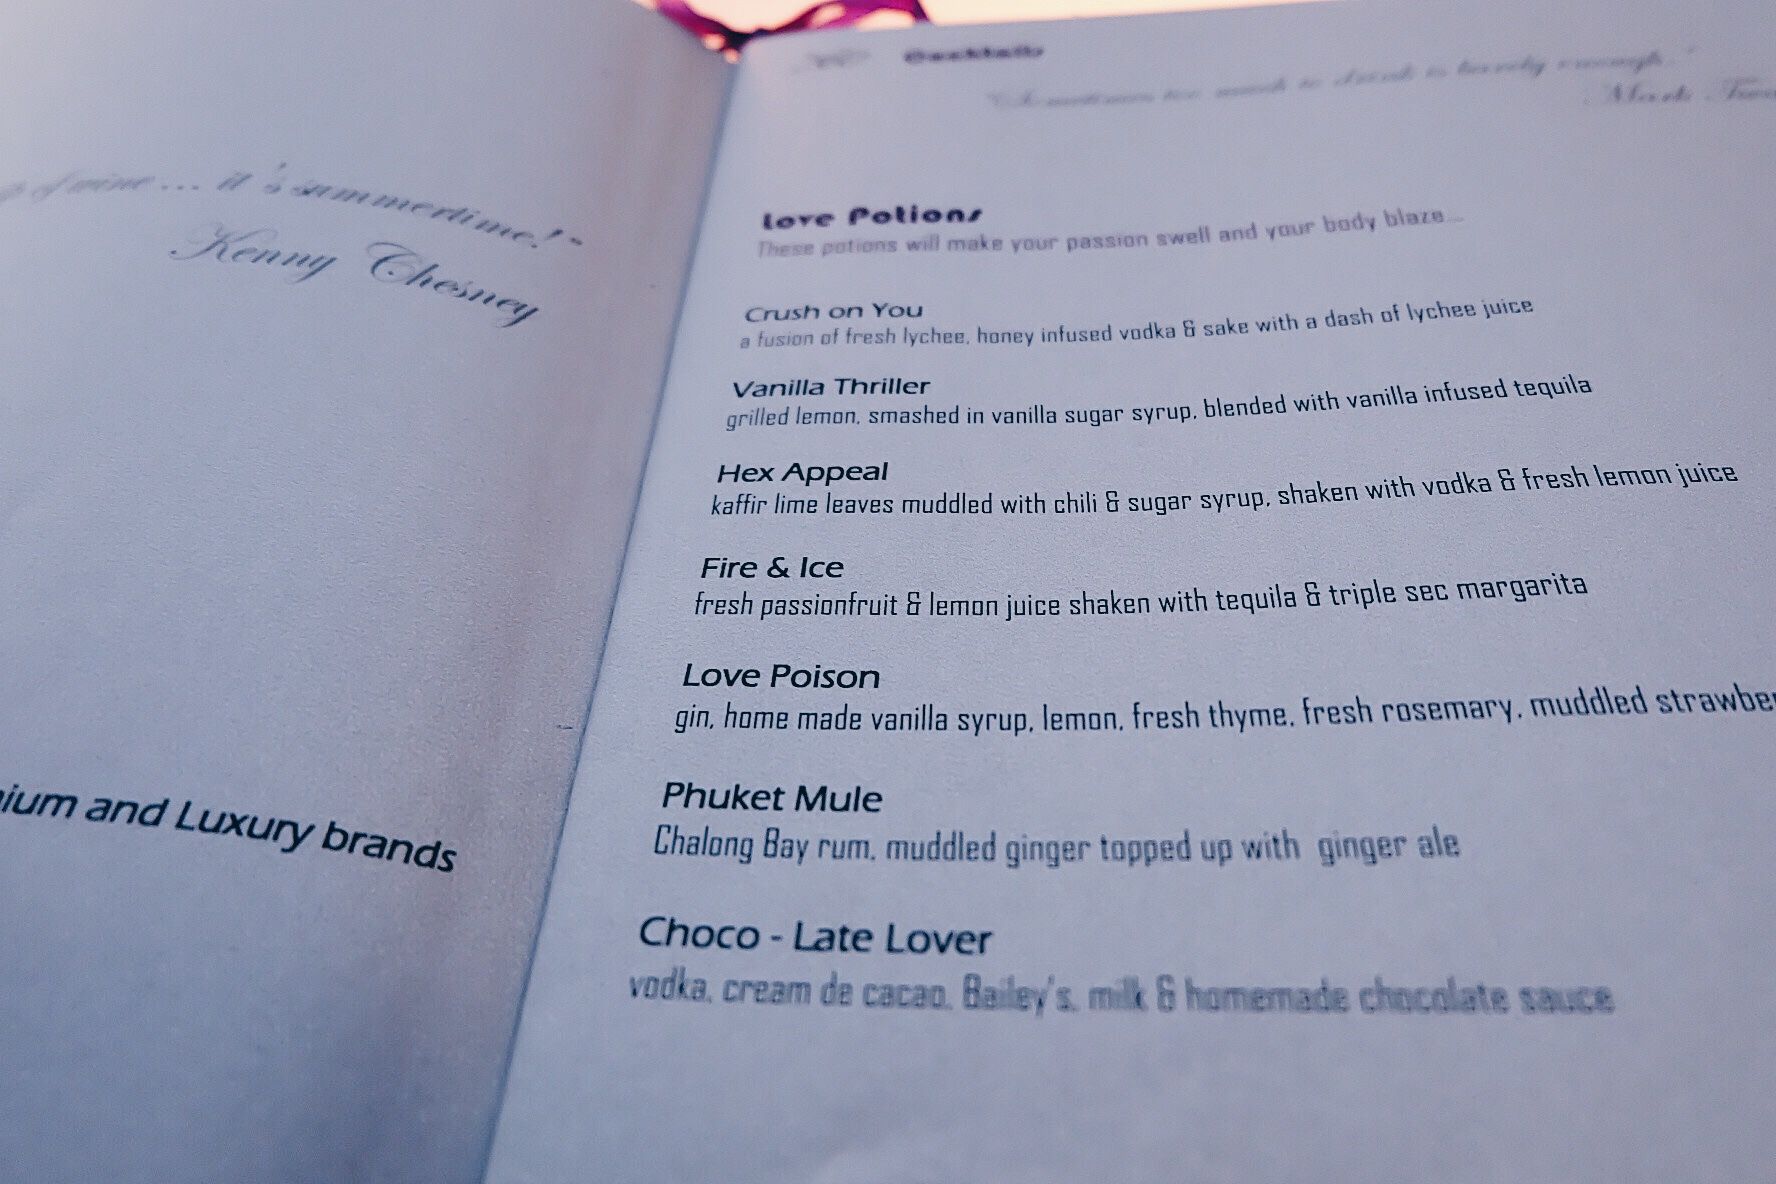 of wine ... it's summertime! "
Kenny Chesney
and Luxury brands
Cocktails
"Sometimes too much to drink is barely enough."
Mark
Love Potions
These potions will make your passion swell and your body blaze...
Crush on You
a fusion of fresh lychee, honey infused vodka & sake with a dash of lychee juice
Vanilla Thriller
grilled lemon, smashed in vanilla sugar syrup, blended with vanilla infused tequila
Hex Appeal
kaffir lime leaves muddled with chili & sugar syrup, shaken with vodka & fresh lemon juice
Fire & Ice
fresh passionfruit & lemon juice shaken with tequila & triple sec margarita
Love Poison
gin, home made vanilla syrup, lemon, fresh thyme, fresh rosemary, muddled
Phuket Mule
Chalong Bay rum, muddled ginger topped up with ginger ale
Choco - Late Lover
vodka, cream de cacao, Bailey's, milk & homemade chocolate sauce